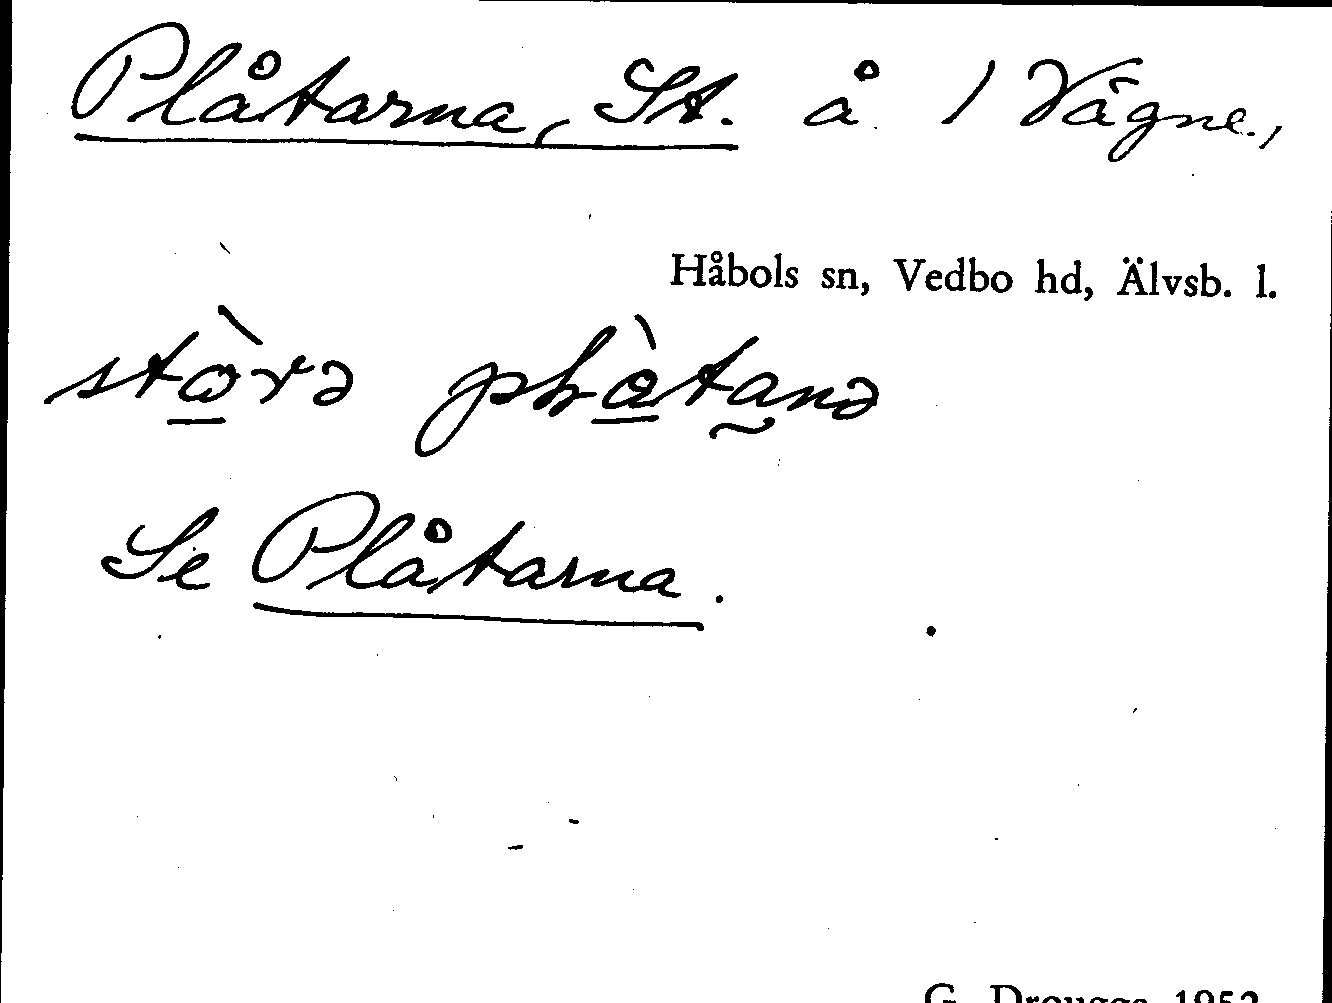 Plåtarna, St. å 1 Vägne.,
Håbols sn, Vedbo hd, Älvsb. l.
stòrə plàtanə
Se Plåtarna.
G. Drougge 1952